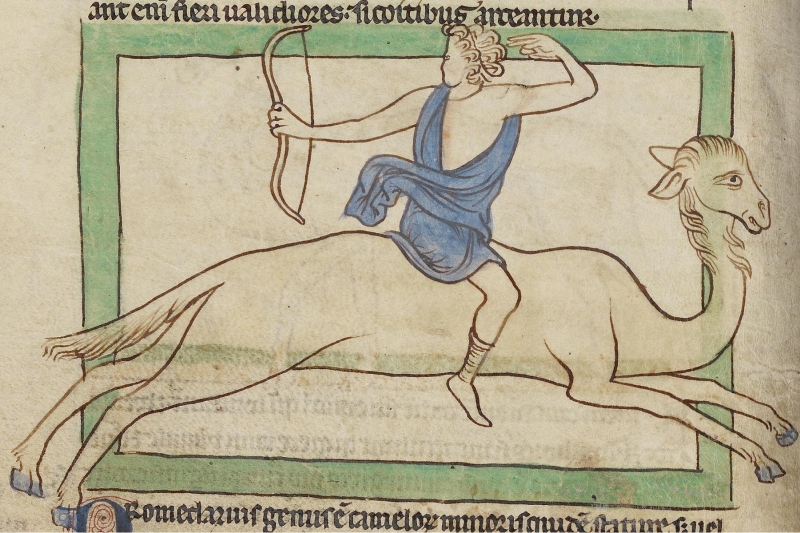 aut eni fieri ualidiores: si coitibus arceantur.
Romedarius genus ē camelor minoris quidē stature s; uel